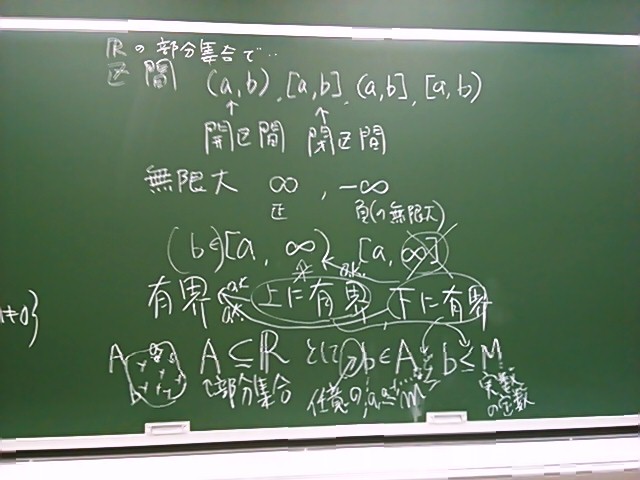 Rの部分集合で…
区間 (a,b), [a,b], (a,b], [a,b)
開区間 閉区間
無限大 ∞, -∞
正 負(の無限大)
(b∈[a, ∞) [a, ∞]
o.k.
有界 上に有界 下に有界
A A⊆R として ∀b∈A m≤b≤M
部分集合 任意の 実数の定数